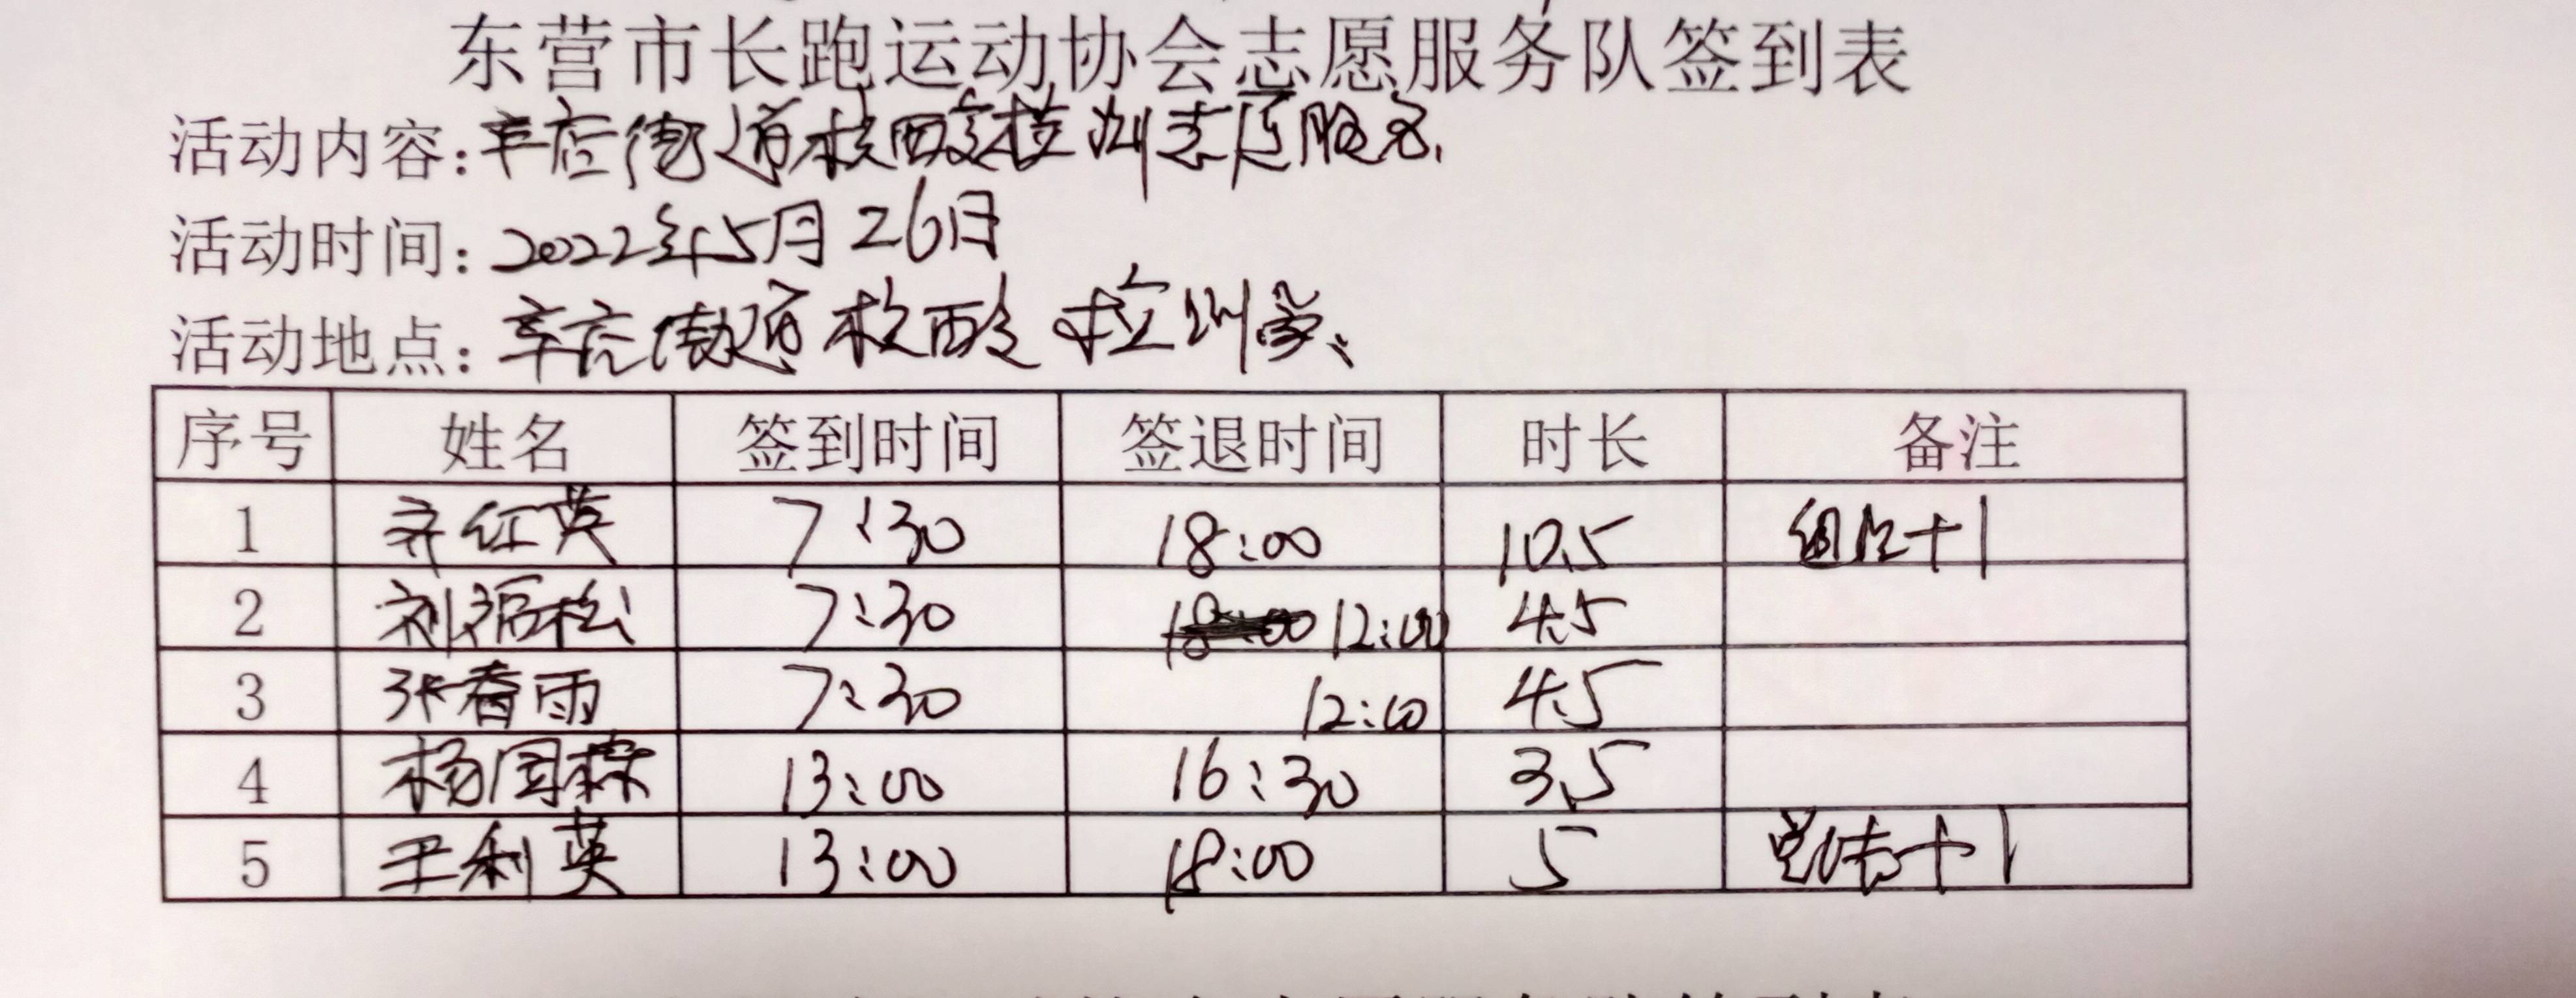 东营市长跑运动协会志愿服务队签到表
活动内容:辛店街道核酸检测志愿服务.
活动时间:2022年5月26日
活动地点:辛店街道核酸检测点
序号 姓名 签到时间 签退时间 时长 备注
1 齐红英 7:30 18:00 10.5 组队+1
2 刘福松 7:30 12:00 4.5
3 张春雨 7:30 12:00 4.5
4 杨国霖 13:00 16:30 3.5
5 王利英 13:00 18:00 5 总结+1